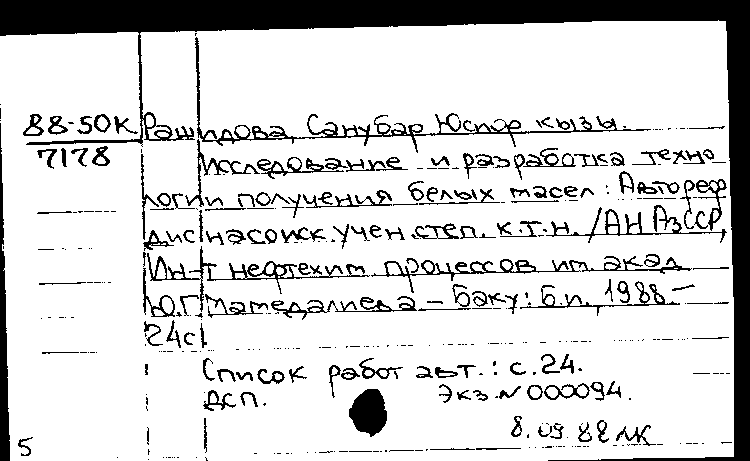 88-50К Рашидова, Санубар Юспор кызы.
7178 Исследование и разработка техно
логии получения белых масел: Автореф
дис на соиск. учен. степ. к.т.н. / АН АзССР,
Ин-т нефтехим. процессов им. акад.
Ю.Г. Мамедалиева - Баку: б.и., 1988. -
24с.
Список работ авт.: с. 24.
ДСП. Экз. N 000094.
8.09.88 МК
5